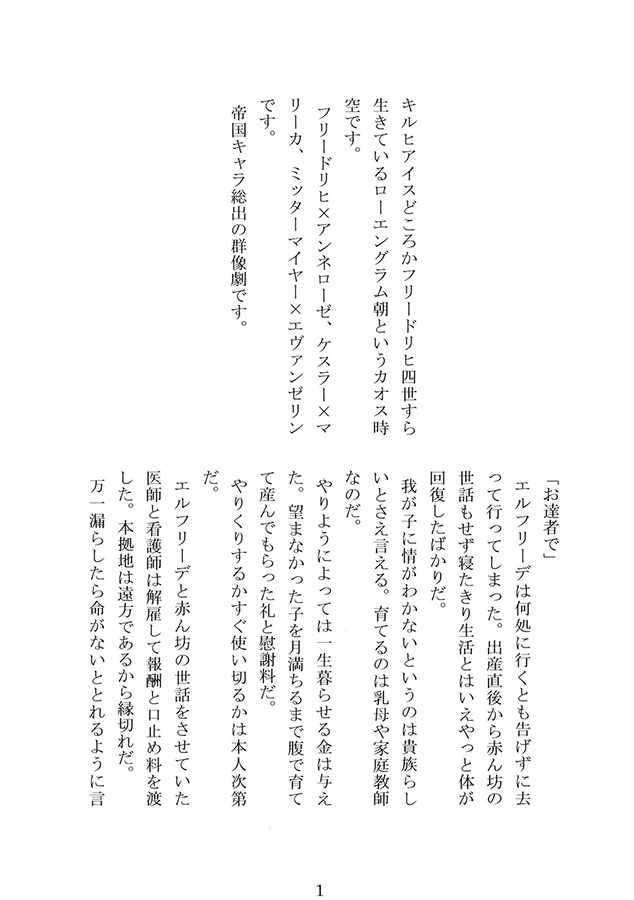 キルヒアイスどころかフリードリヒ四世すら
生きているローエングラム朝というカオス時
空です。
フリードリヒ×アンネローゼ、ケスラー×マ
リーカ、ミッターマイヤー×エヴァンゼリン
です。
帝国キャラ総出の群像劇です。
「お達者で」
エルフリーデは何処に行くとも告げずに去
って行ってしまった。出産直後から赤ん坊の
世話もせず寝たきり生活とはいえやっと体が
回復したばかりだ。
我が子に情がわかないというのは貴族らし
いとさえ言える。育てるのは乳母や家庭教師
なのだ。
やりようによっては一生暮らせる金は与え
た。望まなかった子を月満ちるまで腹で育て
て産んでもらった礼と慰謝料だ。
やりくりするかすぐ使い切るかは本人次第
だ。
エルフリーデと赤ん坊の世話をさせていた
医師と看護師は解雇して報酬と口止め料を渡
した。本拠地は遠方であるから縁切れだ。
万一漏らしたら命がないととれるように言
1